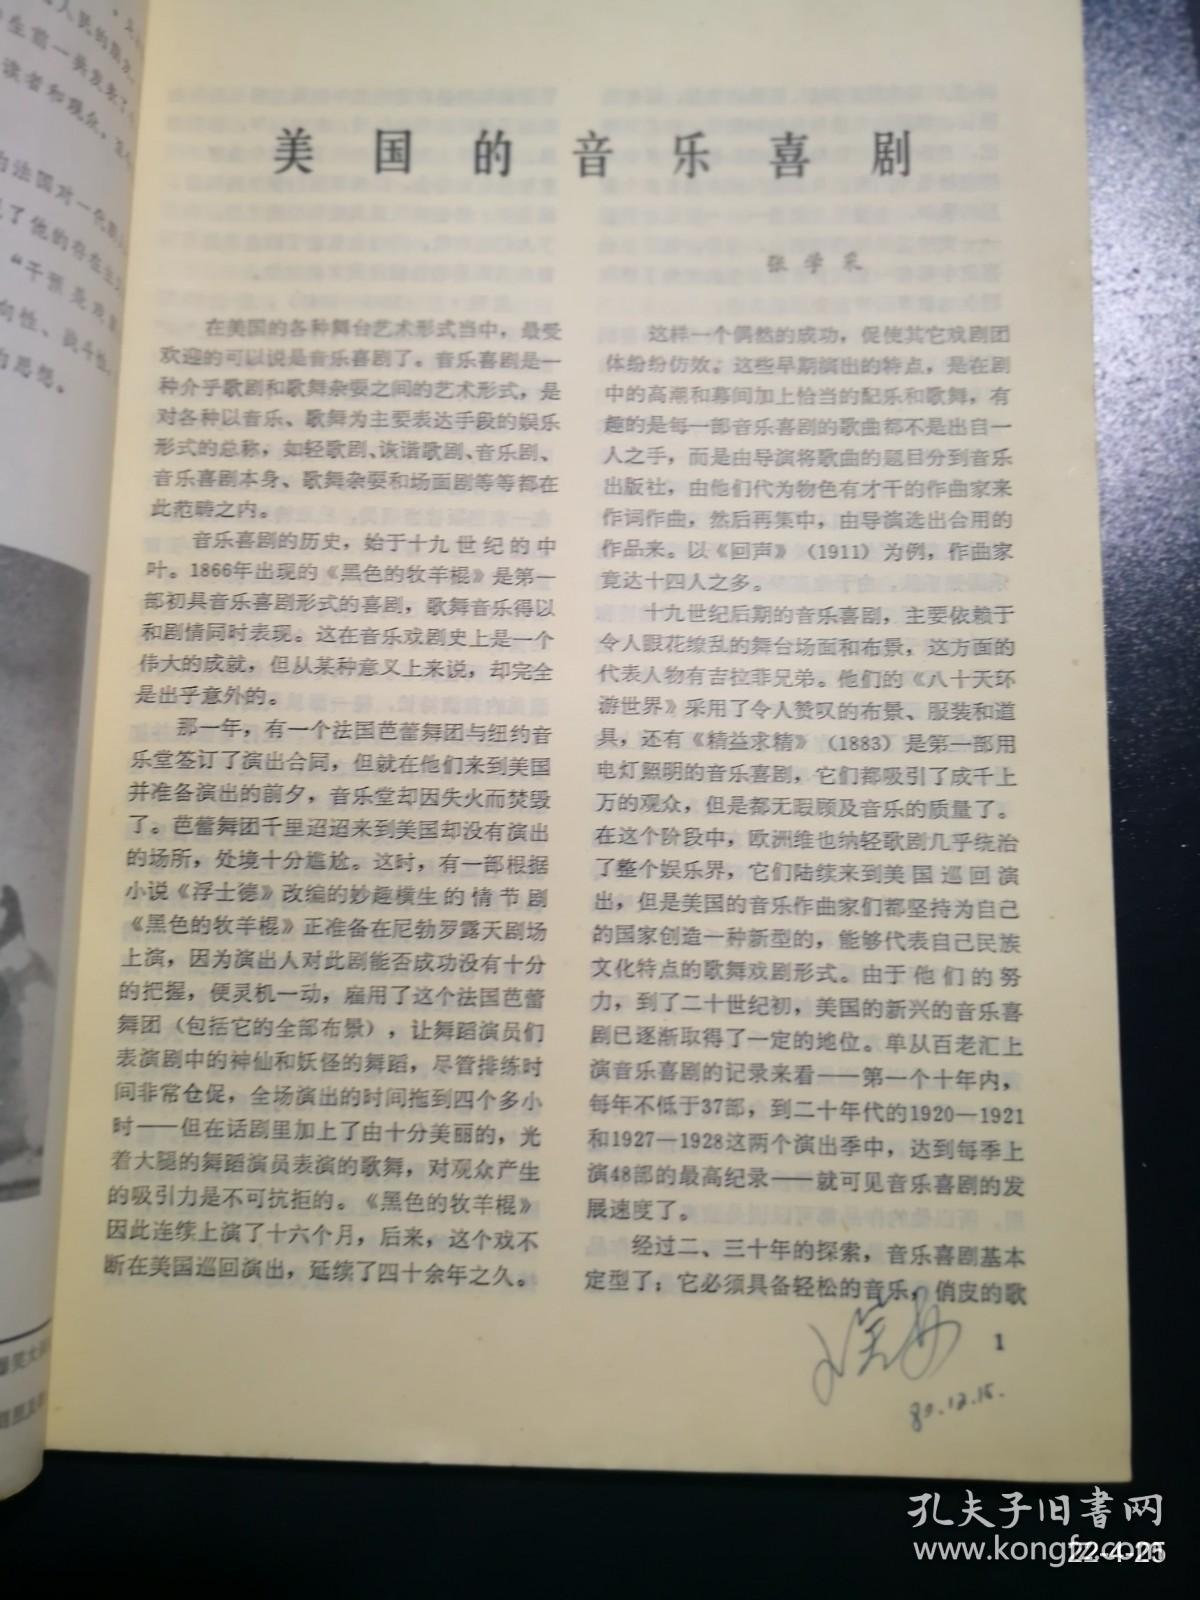 美国的音乐喜剧
张学采
在美国的各种舞台艺术形式当中，最受
欢迎的可以说是音乐喜剧了。音乐喜剧是一
种介乎歌剧和歌舞杂耍之间的艺术形式，是
对各种以音乐、歌舞为主要表达手段的娱乐
形式的总称，如轻歌剧、诙谐歌剧、音乐剧、
音乐喜剧本身、歌舞杂耍和场面剧等等都在
此范畴之内。
音乐喜剧的历史，始于十九世纪的中
叶。1866年出现的《黑色的牧羊棍》是第一
部初具音乐喜剧形式的喜剧，歌舞音乐得以
和剧情同时表现。这在音乐戏剧史上是一个
伟大的成就，但从某种意义上来说，却完全
是出乎意外的。
那一年，有一个法国芭蕾舞团与纽约音
乐堂签订了演出合同，但就在他们来到美国
并准备演出的前夕，音乐堂却因失火而焚毁
了。芭蕾舞团千里迢迢来到美国却没有演出
的场所，处境十分尴尬。这时，有一部根据
小说《浮士德》改编的妙趣横生的情节剧
《黑色的牧羊棍》正准备在尼勃罗露天剧场
上演，因为演出人对此剧能否成功没有十分
的把握，便灵机一动，雇用了这个法国芭蕾
舞团（包括它的全部布景），让舞蹈演员们
表演剧中的神仙和妖怪的舞蹈，尽管排练时
间非常仓促，全场演出的时间拖到四个多小
时——但在话剧里加上了由十分美丽的，光
着大腿的舞蹈演员表演的歌舞，对观众产生
的吸引力是不可抗拒的。《黑色的牧羊棍》
因此连续上演了十六个月，后来，这个戏不
断在美国巡回演出，延续了四十余年之久。
这样一个偶然的成功，促使其它戏剧团
体纷纷仿效。这些早期演出的特点，是在剧
中的高潮和幕间加上恰当的配乐和歌舞，有
趣的是每一部音乐喜剧的歌曲都不是出自一
人之手，而是由导演将歌曲的题目分到音乐
出版社，由他们代为物色有才干的作曲家来
作词作曲，然后再集中，由导演选出合用的
作品来。以《回声》（1911）为例，作曲家
竟达十四人之多。
十九世纪后期的音乐喜剧，主要依赖于
令人眼花缭乱的舞台场面和布景，这方面的
代表人物有吉拉菲兄弟。他们的《八十天环
游世界》采用了令人赞叹的布景、服装和道
具，还有《精益求精》（1883）是第一部用
电灯照明的音乐喜剧，它们都吸引了成千上
万的观众，但是都无暇顾及音乐的质量了。
在这个阶段中，欧洲维也纳轻歌剧几乎统治
了整个娱乐界，它们陆续来到美国巡回演
出，但是美国的音乐作曲家们都坚持为自己
的国家创造一种新型的，能够代表自己民族
文化特点的歌舞戏剧形式。由于他们的努
力，到了二十世纪初，美国的新兴的音乐喜
剧已逐渐取得了一定的地位。单从百老汇上
演音乐喜剧的记录来看——第一个十年内，
每年不低于37部，到二十年代的1920—1921
和1927—1928这两个演出季中，达到每季上
演48部的最高纪录——就可见音乐喜剧的发
展速度了。
经过二、三十年的探索，音乐喜剧基本
定型了；它必须具备轻松的音乐，俏皮的歌
1
80.12.15.
孔夫子旧书网
www.kongfz.com
22-4-25